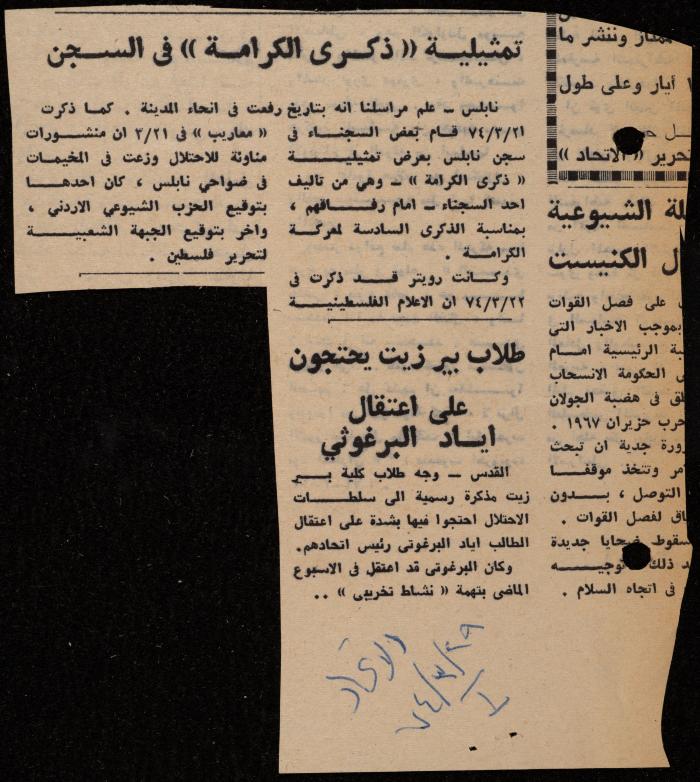 تمثيلية « ذكرى الكرامة » فى السجن
نابلس ــ علم مراسلنا انه بتاريخ
٧٤/٣/٢١ قام بعض السجناء فى
سجن نابلس بعرض تمثيلية
« ذكرى الكرامة » ــ وهي من تاليف
احد السجناء ــ امام رفاقهم ،
بمناسبة الذكرى السادسة لمعركة
الكرامة .
وكانت رويتر قد ذكرت فى
٧٤/٣/٢٢ ان الاعلام الفلسطينية
رفعت فى انحاء المدينة . كما ذكرت
« معاريب » فى ٣/٢١ ان منشورات
مناوئة للاحتلال وزعت فى المخيمات
فى ضواحي نابلس ، كان احدها
بتوقيع الحزب الشيوعي الاردني ،
واخر بتوقيع الجبهة الشعبية
لتحرير فلسطين .
طلاب بير زيت يحتجون
على اعتقال
اياد البرغوثي
القدس ــ وجه طلاب كلية بير
زيت مذكرة رسمية الى سلطات
الاحتلال احتجوا فيها بشدة على اعتقال
الطالب اياد البرغوتى رئيس اتحادهم.
وكان البرغوتى قد اعتقل فى الاسبوع
الماضى بتهمة « نشاط تخريبى » ..
الاتحاد
٧٤/٣/٢٩
ممتاز وننشر ما
١ أيار وعلى طول
تحرير « الاتحاد »
لة الشيوعية
ل الكنيست
على فصل القوات
بموجب الاخبار التى
بة الرئيسية امام
ى الحكومة الانسحاب
لق فى هضبة الجولان
حرب حزيران ١٩٦٧ .
رورة جدية ان تبحث
مر وتتخذ موقفا
التوصل ، بدون
اق لفصل القوات .
سقوط ضحايا جديدة
د ذلك توجيه
فى اتجاه السلام .